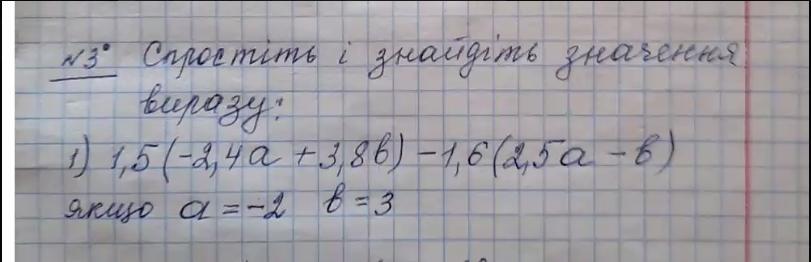 №3° Спростіть і знайдіть значення
виразу:
1) 1,5(-2,4a + 3,8b) - 1,6(2,5a - b)
якщо a = -2 b = 3